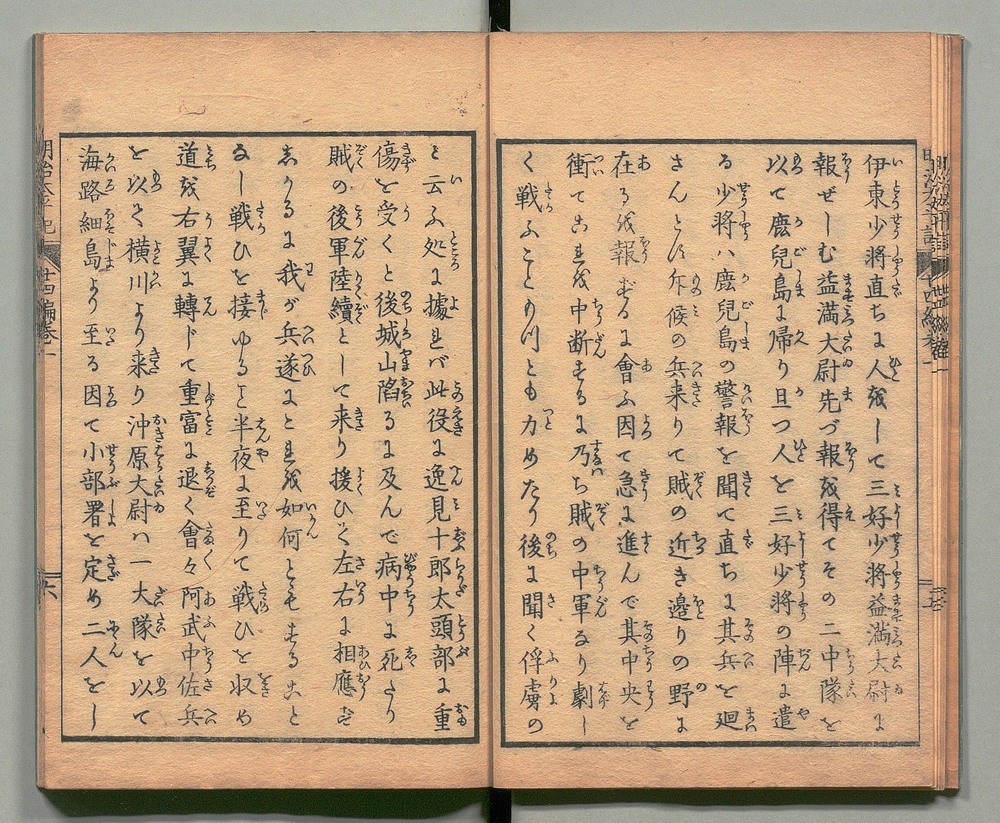 伊東少将直ちに人をして三好少将益満大尉に
報ぜしむ益満大尉先づ報を得てその二中隊を
以て鹿児島に帰り且つ人を三好少将の陣に遣
る少将ハ鹿児島の警報を聞て直ちに其兵を廻
さんとす斥候の兵来りて賊の近き邉りの野に
在るを報ずるに會ふ因て急に進んで其中央を
衝てこれを中断するに乃ち賊の中軍なり劇し
く戦ふこと
ともカめたり後に聞く俘虜の
と云ふ処に據れバ此役に逸見十郎太頭部に重
傷を受くと後城山陷るに及んで病中に死たり
賊の後軍陸續として来り援ひく左右に相應ず
しかるに我が兵遂にこれを如何ともすること
なし戦ひを接ゆると半夜に至りて戦ひを収め
道を右翼に轉じて重富に退く會々阿武中佐兵
を以て横川より来り沖原大尉ハ一大隊を以て
海路細島より至る因て小部署を定め二人をし
明治太平記
廿四編巻一
六